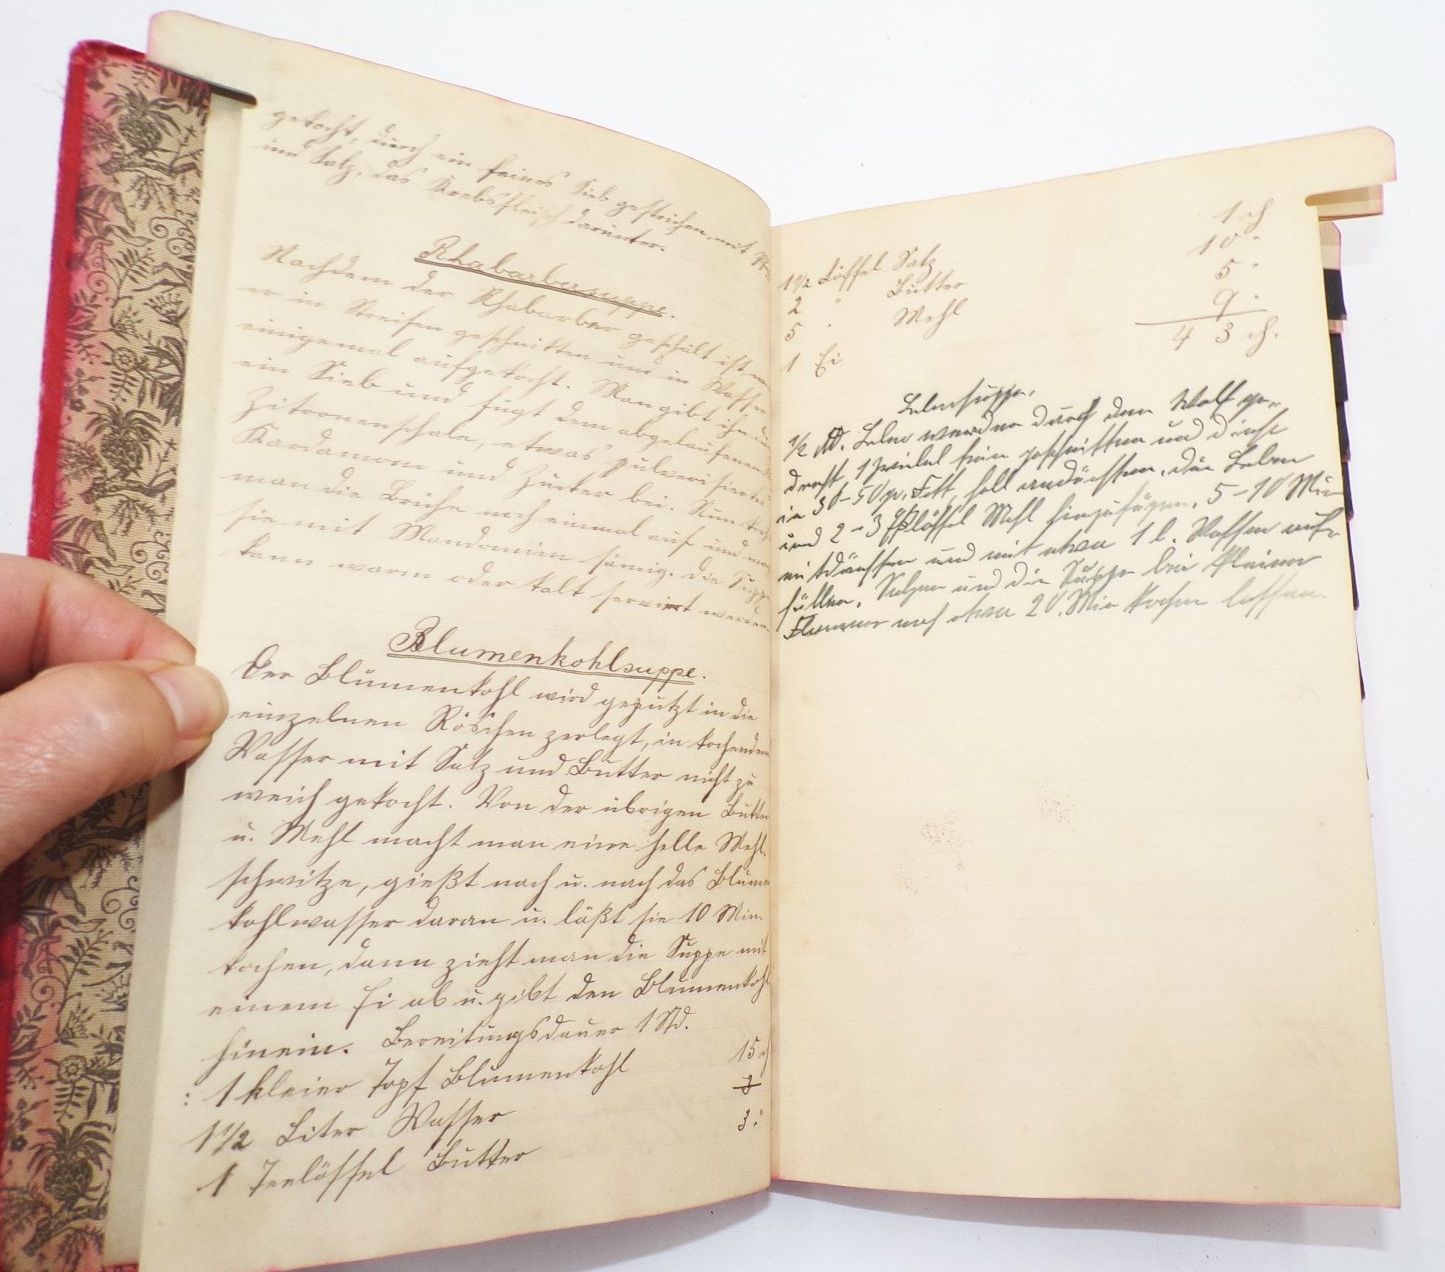 gekocht, durch ein feines Sieb gestrichen, mit
und Salz, das Krebsfleisch darunter.
Rhabarbersuppe.
Nachdem der Rhabarber geschält ist
er in Streifen geschnitten und in Wasser
einigemal aufgekocht. Man gibt ihn
ein Sieb und fügt dem abgelaufenen
Zitronenschale, etwas pulverisierten
Kardamom und Zucker bei. Nun
man die Brühe noch einmal auf und
sie mit Mondamin sämig. Die Suppe
kann warm oder kalt serviert werden.
Blumenkohlsuppe.
Der Blumenkohl wird geputzt in die
einzelnen Röschen zerlegt, in kochendem
Wasser mit Salz und Butter nicht zu
weich gekocht. Von der übrigen Butter
u. Mehl macht man eine helle Mehl-
schwitze, gießt nach u. nach das Blumen
kohlwasser daran u. läßt sie 10 Min.
kochen, dann zieht man die Suppe mit
einem Ei ab u. gibt den Blumenkohl
hinein. Bereitungsdauer 1 Std.
: 1 kleier Topf Blumenkohl 15
1 1/2 Liter Wasser
1 Teelöffel Butter 3 "
1 1/2 Löffel Salz 1
2 " Butter 10 "
5 " Mehl 5 "
1 Ei 9 "
43
Lebersuppe.
1/2 Pfd. Leber werden durch den Wolf ge-
dreht, 1 Zwiebel fein geschnitten und diese
in 30-50 gr. Fett hell andünsten, die Leber
und 2-3 Eßlöffel Mehl hinzufügen, 5-10 Min
mitdünsten und mit etwa 1 l. Wasser auf-
füllen. Salzen und die Suppe bei kleiner
Flamme noch etwa 20 Min kochen lassen.